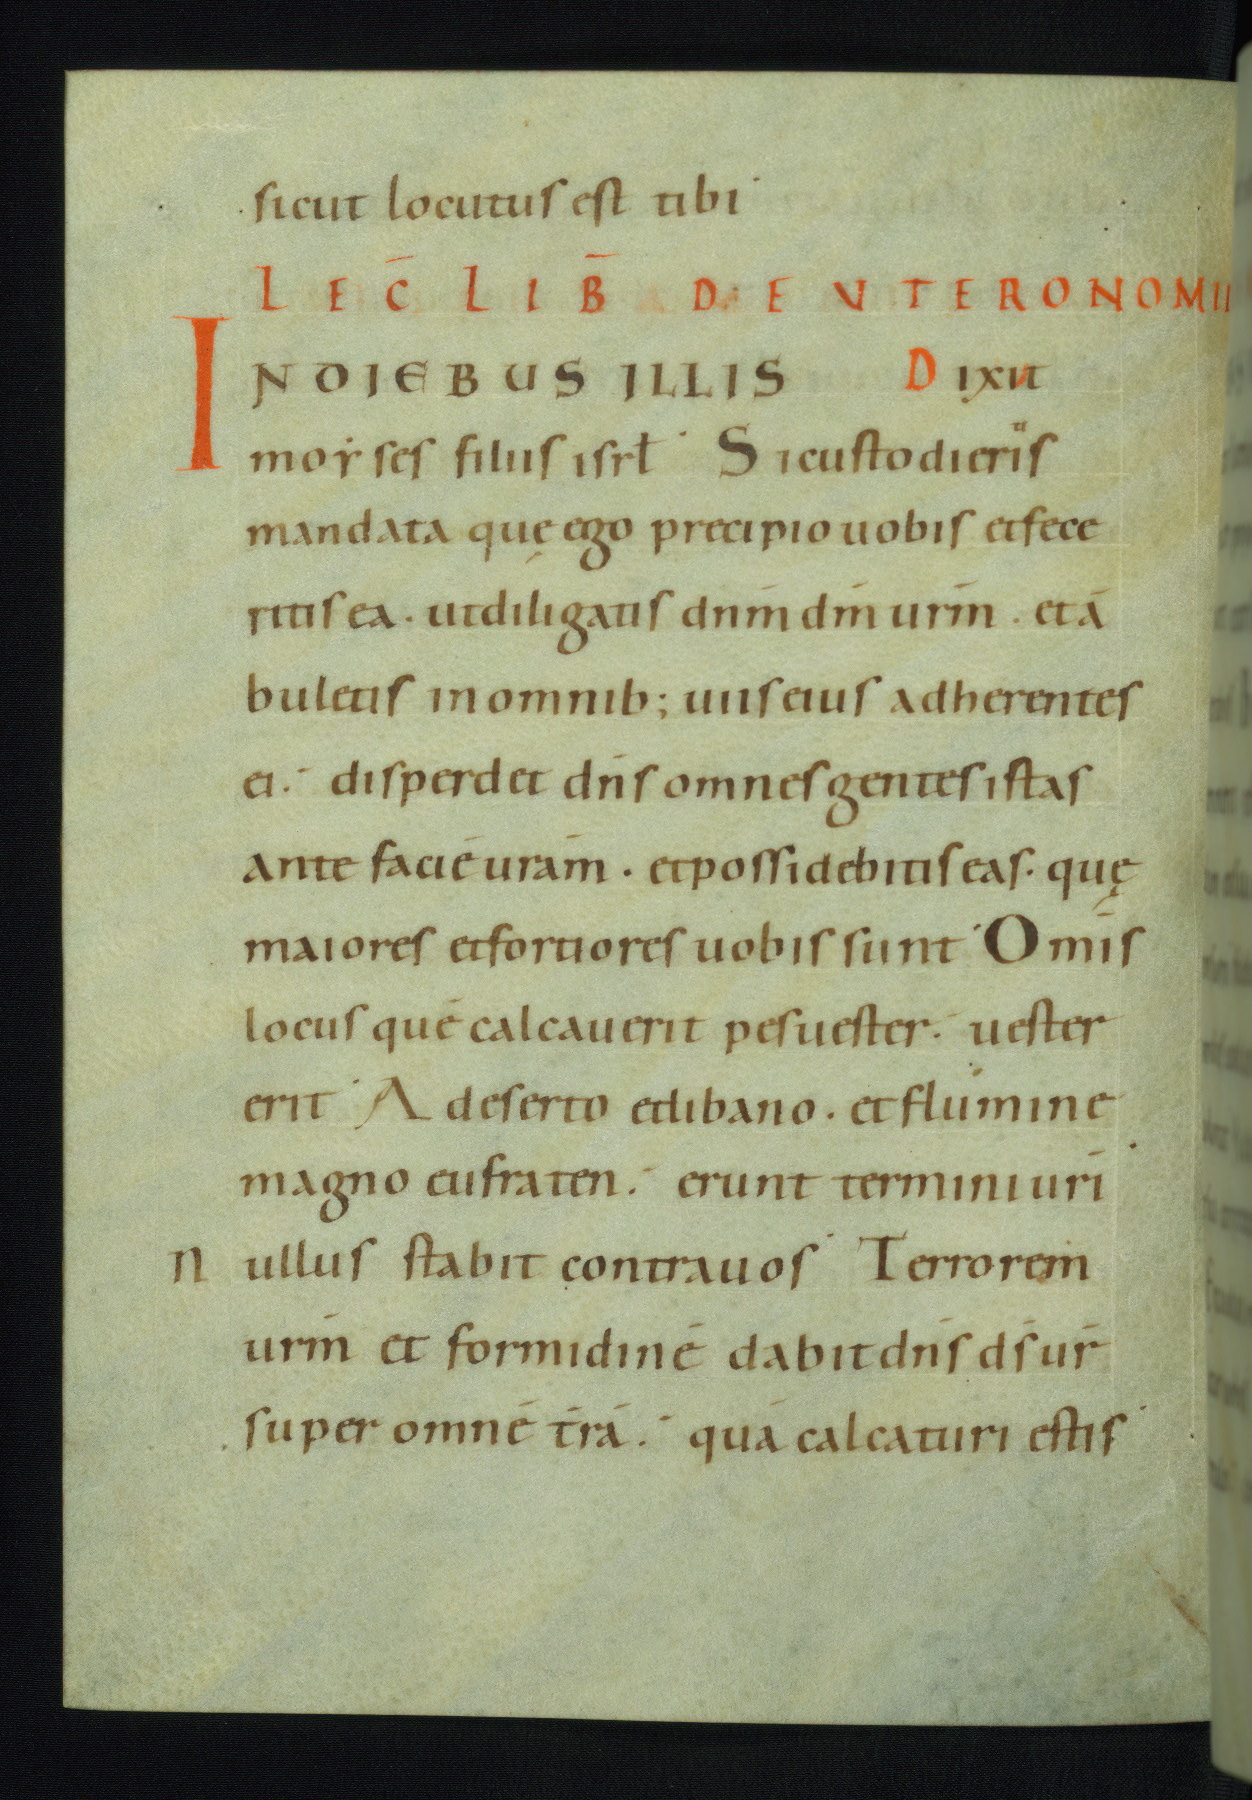 sicut locutus est tibi
LEC̄ LIB̄ DEUTERONOMII
IN DIEBUS ILLIS Dixit
moẏses filiis isrł Si custodieritis
mandata quę ego precipio uobis et fece
ritis ea. ut diligatis dn̄m dm̄ urm̄. et ā
buletis in omnib; uiis eius adherentes
ei. disperdet dn̄s omnes gentes istas
ante faciē uram̄. et possidebitis eas. quę
maiores et fortiores uobis sunt Omīs
locus quē calcauerit pes uester. uester
erit A deserto et libano. et flumine
magno eufraten. erunt termini urī
Nullus stabit contra uos Terrorem
urm̄ et formidinē dabit dn̄s ds̄ ur̄
super omnē t̄rā. quā calcaturi estis